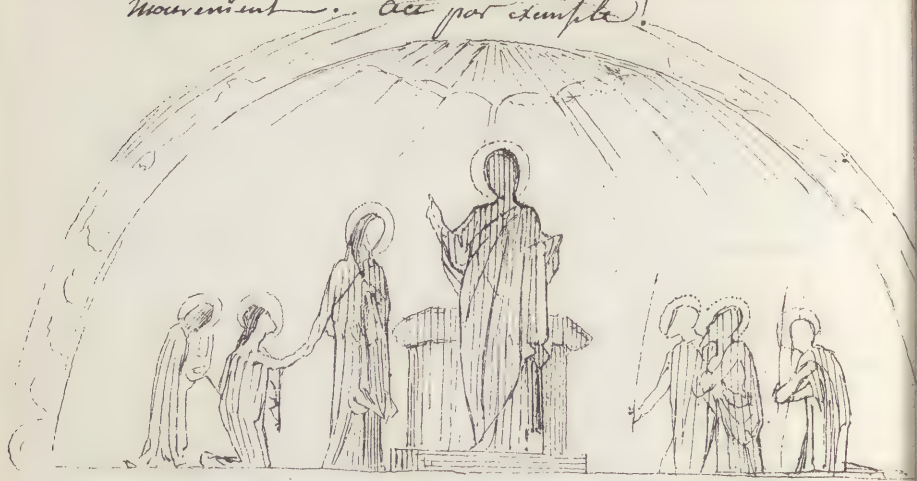 mouvement .. par exemple!